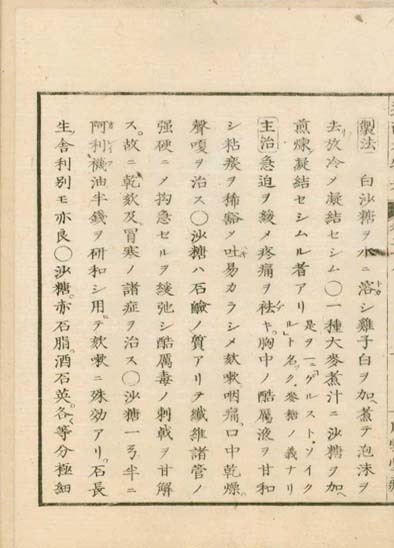 製法 白沙糖ヲ水ニ溶シ雞子白ヲ加煮テ泡沫ヲ
去放冷メ凝結セシム〇一種大麥煮汁ニ沙糖ヲ加ヘ
煎煉凝結セシムル者アリ是ヲゲルスト・ソイクルト名ク・麥糖ノ義ナリ
主治 急迫ヲ緩メ疼痛ヲ祛キ胸中ノ酷厲液ヲ甘和
シ粘痰ヲ稀豁メ吐易カラシメ欬嗽咽痛口中乾燥
聲嗄ヲ治ス〇沙糖ハ石鹼ノ質アリテ纖維諸管ノ
强硬ニメ拘急セルヲ緩弛シ酷厲毒ノ刺戟ヲ甘解
ス故ニ乾欬及冒寒ノ諸症ヲ治ス〇沙糖一弓半ニ
阿利襪油半錢ヲ研和シ用テ欬嗽ニ殊効アリ石長
生舍利別モ亦良〇沙糖赤石脂酒石英各等分極細